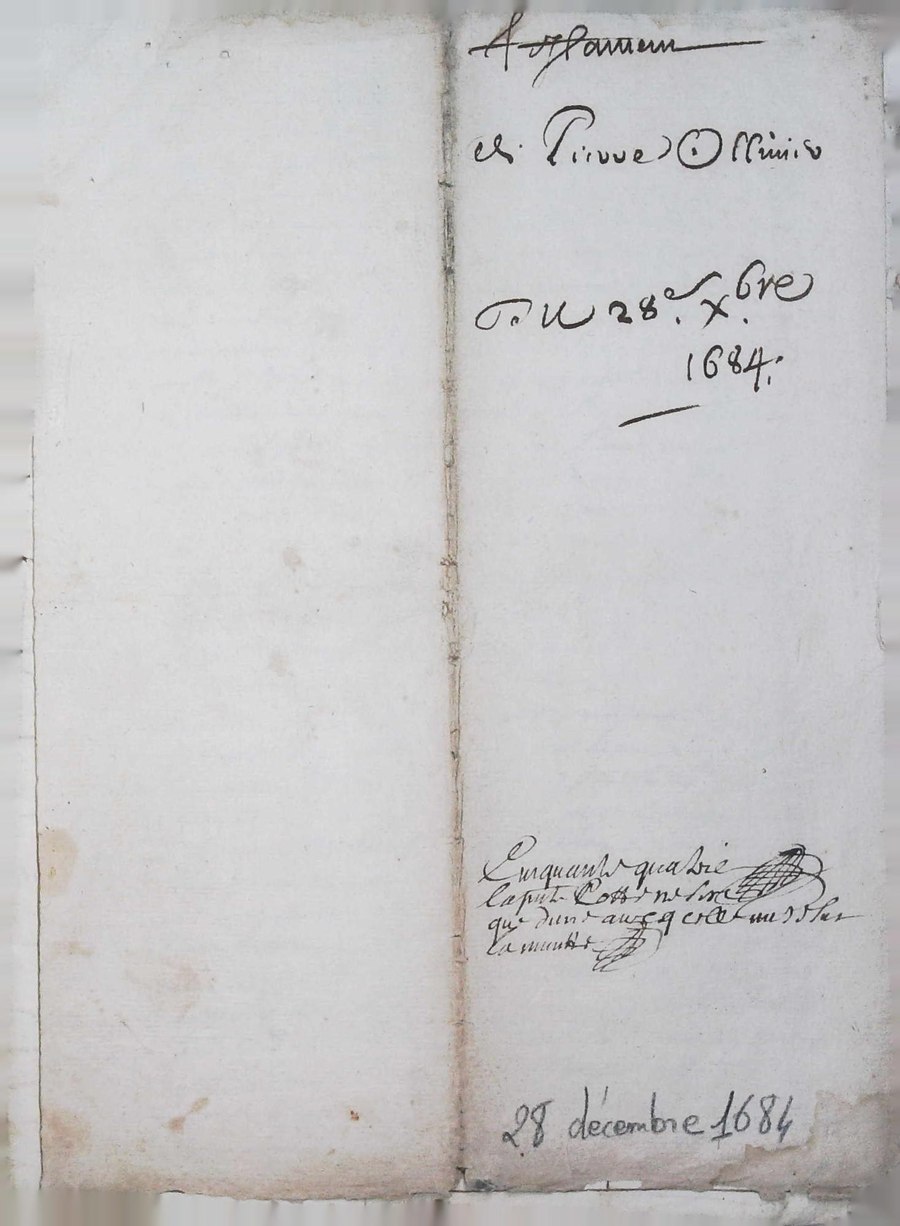 Testament
de Pierre Ollivier
Du 28e. xbre
1684.
Cinquante quatrie
la pnte Cotte ne ser
que d'une avec celle
la minutte
28 décembre 1684